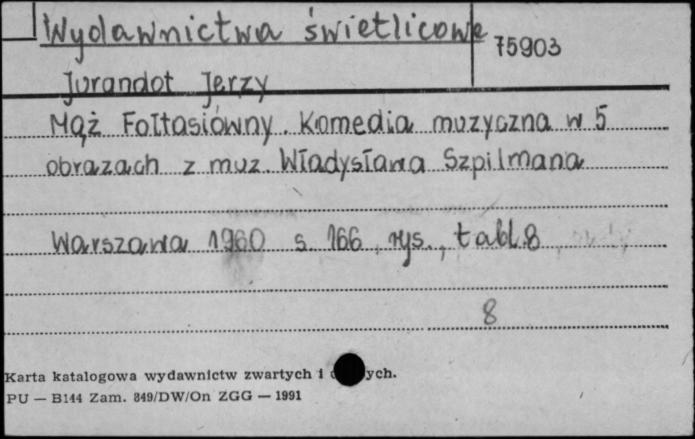 Wydawnictwa świetlicowe
75903
Jurandot Jerzy
Mąż Fołtasiówny. Komedia muzyczna w 5
obrazach z muz. Władysława Szpilmana
Warszawa 1960 s. 166, rys., tabl. 8
8
Karta katalogowa wydawnictw zwartych i ych.
PU — B144 Zam. 849/DW/On ZGG — 1991